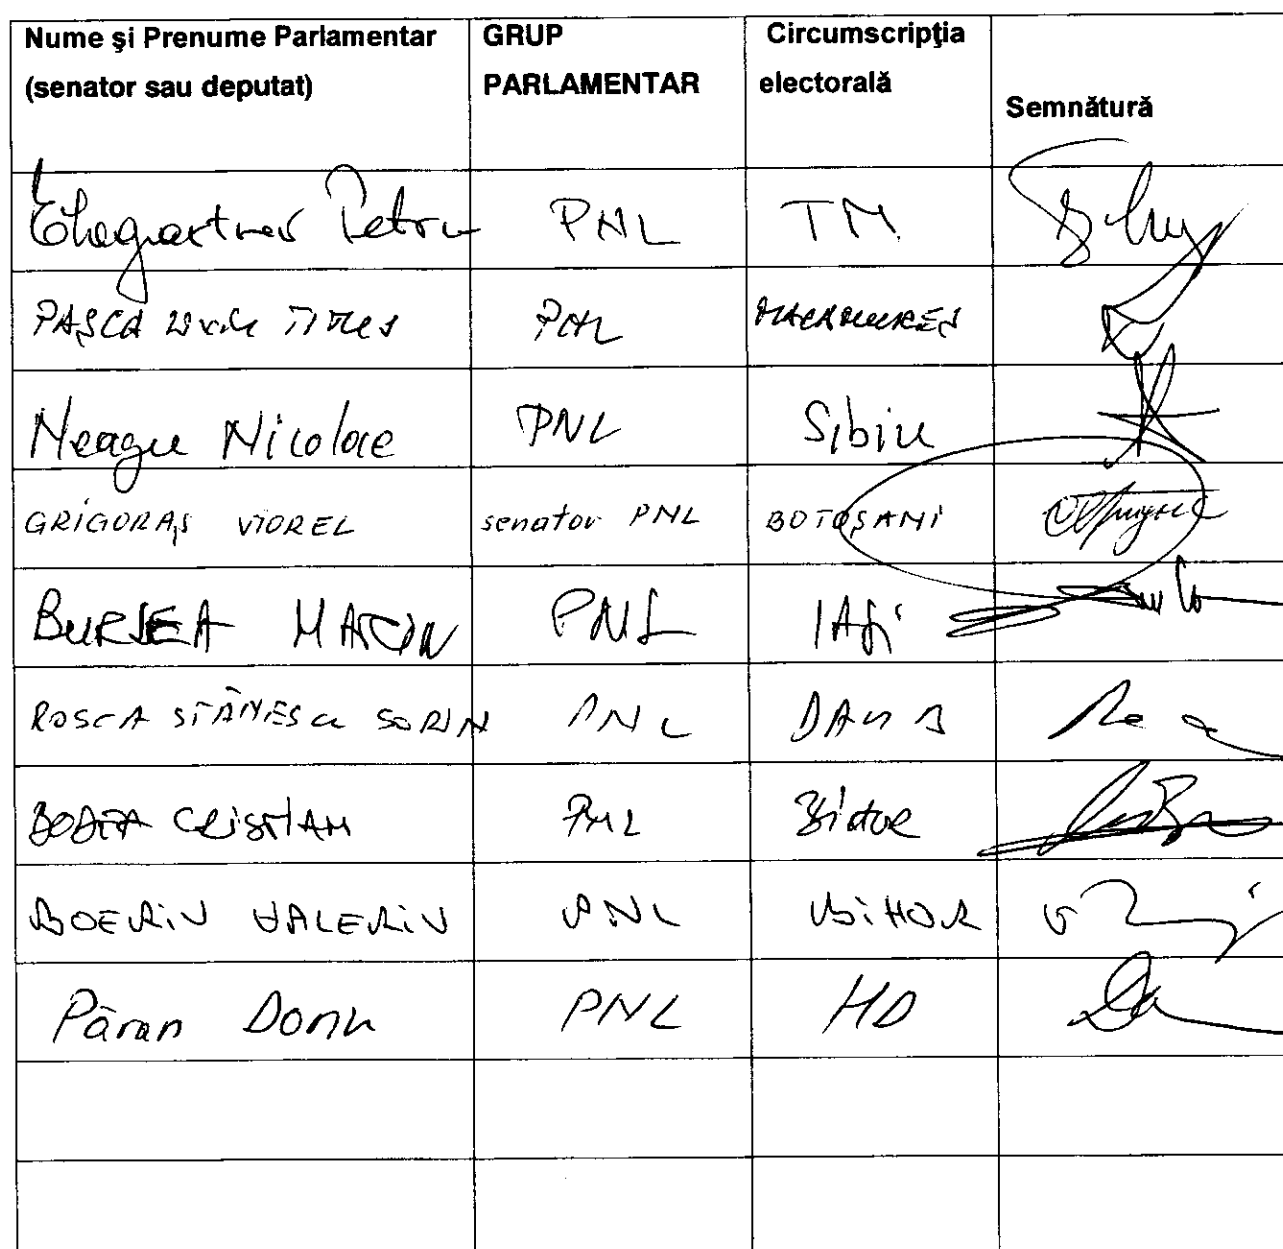 Nume şi Prenume Parlamentar (senator sau deputat)
GRUP PARLAMENTAR
Circumscripţia electorală
Semnătură
Ehegartner Petru PNL TM
PAŞCA TITUS PNL MARAMUREŞ
Neagu Nicolae PNL Sibiu
GRIGORAŞ VIOREL senator PNL BOTOŞANI
BURLEA MARIN PNL IAŞI
ROSCA STĂNESCU SORIN PNL
CRISTIAN PNL Bihor
BOERIU VALERIU PNL BIHOR
Păran Dorin PNL HD